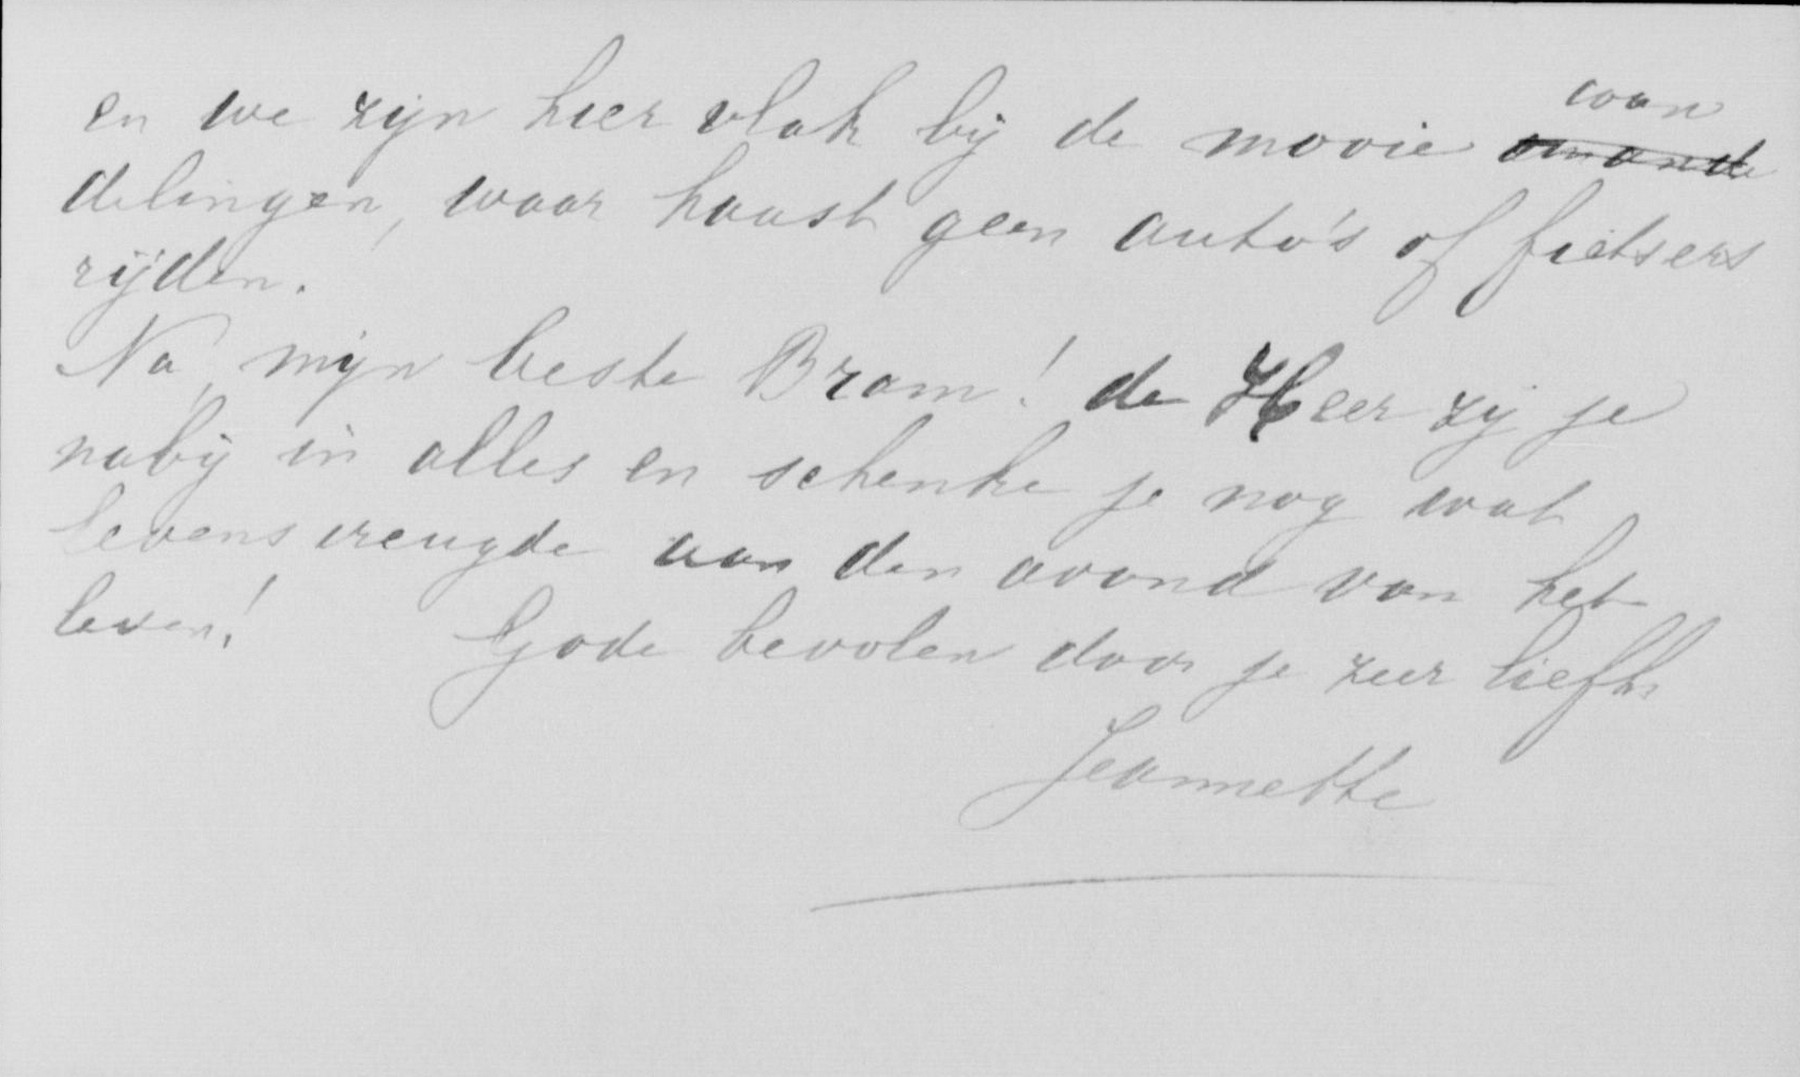 en we zijn hier vlak bij de mooie wan
delingen, waar haast geen auto's of fietsers
rijden.
Na, mijn beste Bram! de Heer zij je
nabij in alles en schenke je nog wat
levensvreugde aan den avond van het
leven! Gode bevolen door je zeer liefh
Jeannette